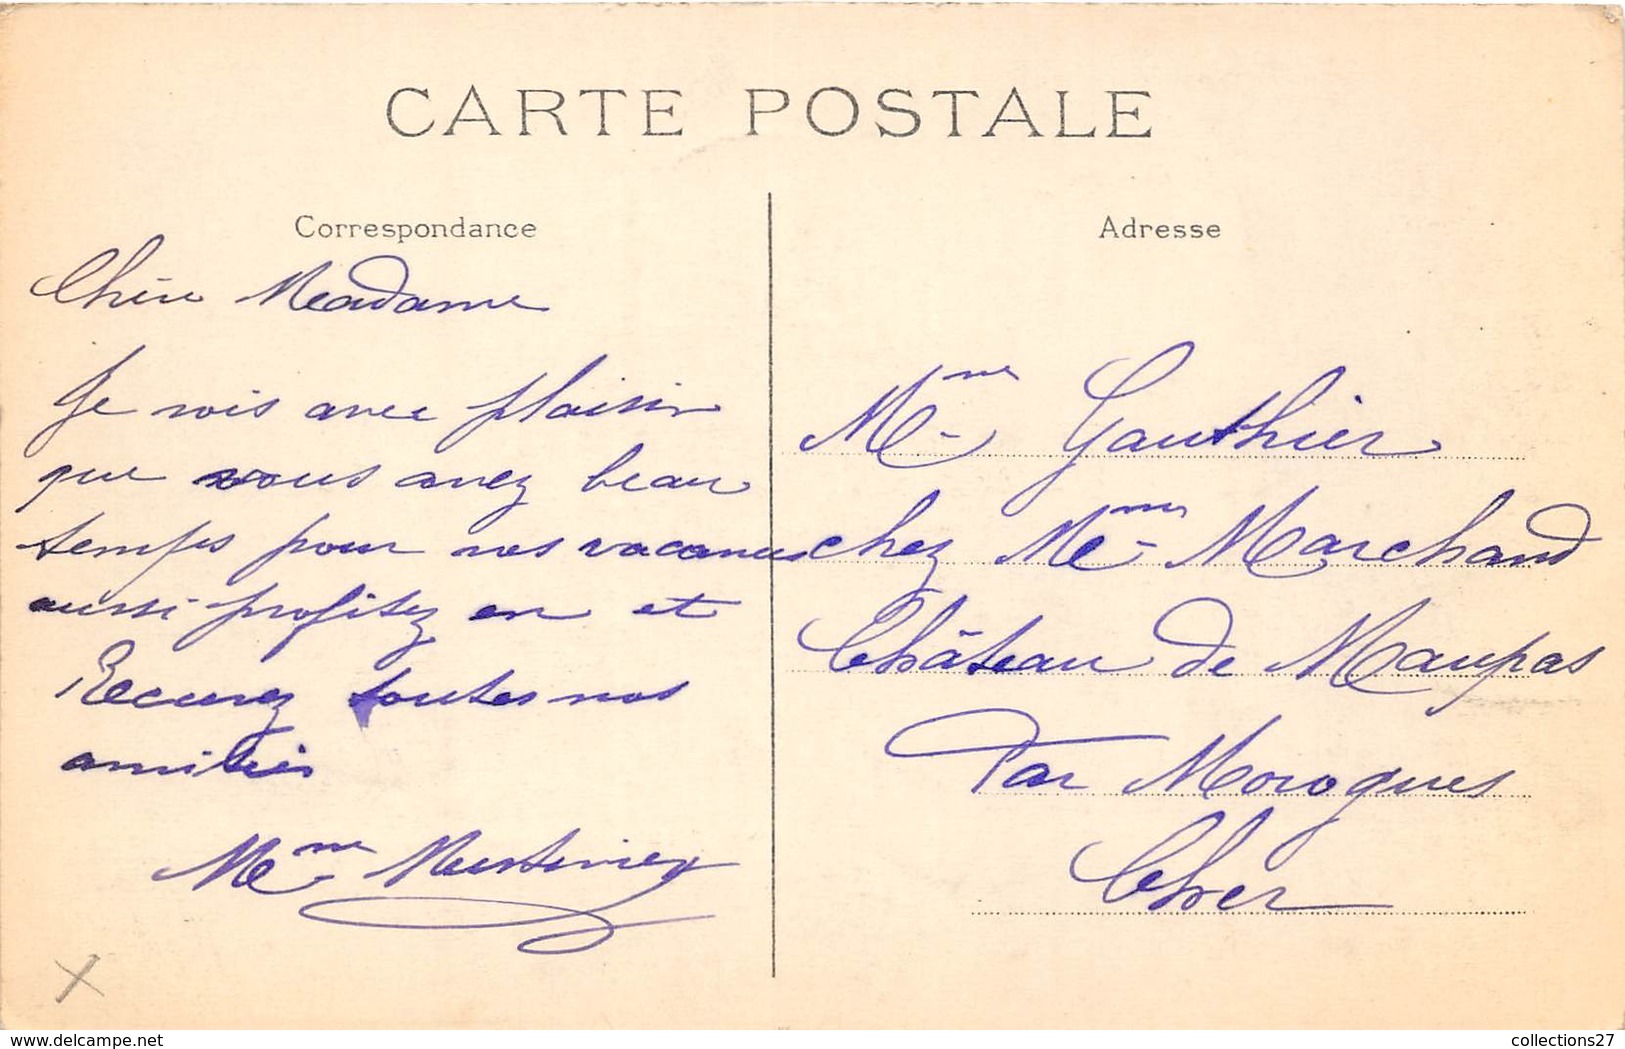 CARTE POSTALE
Correspondance
Chère Madame
Je vois avec plaisir
que vous avez beau
temps pour vos vacances
aussi profitez en et
Recevez toutes nos
amitiés
Mme
Adresse
Mme Gauthier
chez Mme Marchand
Château de Maupas
Par Morogues
Cher
delcampe.net
collections27